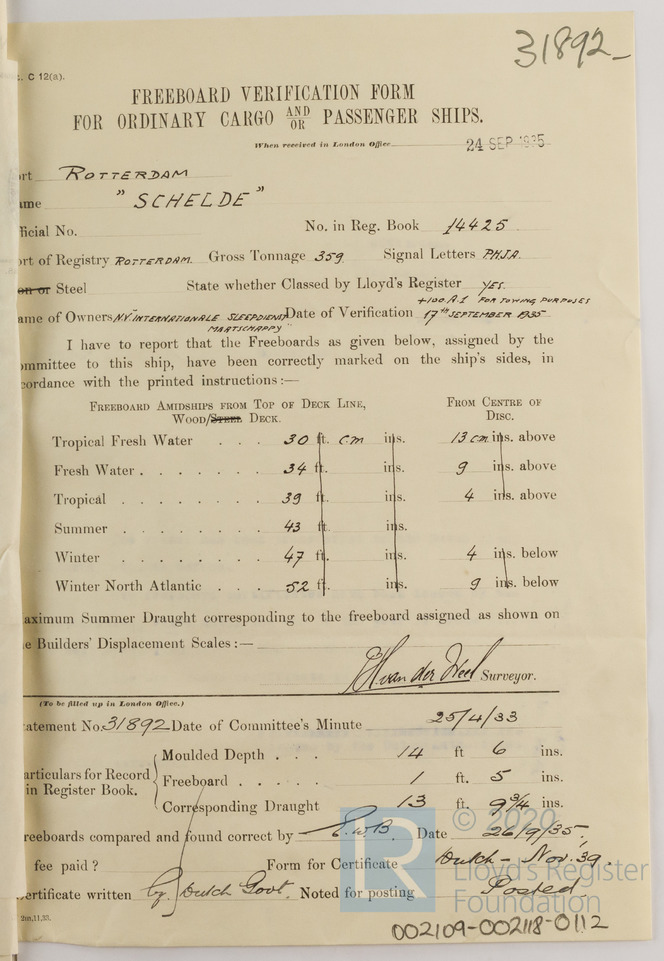 31892
C 12(a).
FREEBOARD VERIFICATION FORM
FOR ORDINARY CARGO AND/OR PASSENGER SHIPS.
When received in London Office 24 SEP 1935
rt ROTTERDAM
me "SCHELDE"
ficial No. No. in Reg. Book 14425
rt of Registry ROTTERDAM. Gross Tonnage 359 Signal Letters PHJA.
on or Steel State whether Classed by Lloyd's Register YES.
+100A.1 FOR TOWING PURPOSES
ame of Owners N.V. "INTERNATIONALE SLEEPDIENST Date of Verification 17th SEPTEMBER 1935
MAATSCHAPPY"
I have to report that the Freeboards as given below, assigned by the
mmittee to this ship, have been correctly marked on the ship's sides, in
cordance with the printed instructions:—
FREEBOARD AMIDSHIPS FROM TOP OF DECK LINE, FROM CENTRE OF
WOOD/STEEL DECK. DISC.
Tropical Fresh Water . . . 30 ft. cm ins. 13 cm ins. above
Fresh Water . . . . . . . 34 ft. ins. 9 ins. above
Tropical . . . . . . . 39 ft. ins. 4 ins. above
Summer . . . . . . . 43 ft. ins.
Winter . . . . . . . 47 ft. ins. 4 ins. below
Winter North Atlantic . . . 52 ft. ins. 9 ins. below
aximum Summer Draught corresponding to the freeboard assigned as shown on
e Builders' Displacement Scales:—
van der Surveyor.
(To be filled up in London Office.)
atement No. 31892 Date of Committee's Minute 25/4/33
Moulded Depth . . . 14 ft 6 ins.
articulars for Record
in Register Book.
Freeboard . . . . . 1 ft. 5 ins.
Corresponding Draught 13 ft. 9 3/4 ins.
reeboards compared and found correct by E.W.B. Date 26/9/35.
fee paid? Form for Certificate Dutch - Nov. 39.
ertificate written by Dutch Govt. Noted for posting Posted
2m,11,33.
© 2020
Lloyd's Register
Foundation
002109-002118-0112